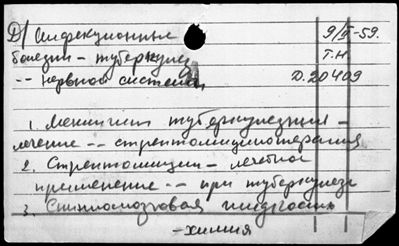 Д/ Инфекционные 9/II-59.
болезни – туберкулез Т.Н.
-- нервной системы Д.20409
1. Менингит туберкулезный –
лечение -- стрептомицинотерапия
2. Стрептомицин – лечебное
применение -- при туберкулезе
3. Спинномозговая жидкость
– химия